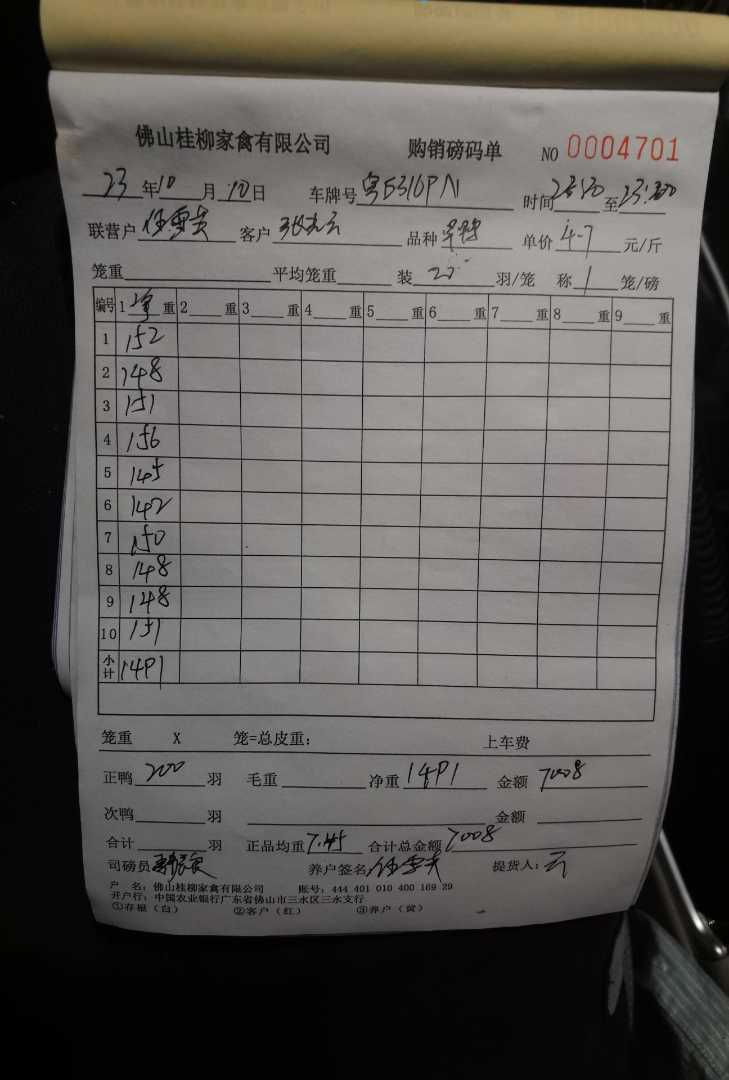 佛山桂柳家禽有限公司 购销磅码单 NO 0004701
23 年 10 月 10 日 车牌号 粤E316PN 时间 至
联营户 客户 张志云 品种 单价 4.7 元/斤
笼重 平均笼重 装 20 羽/笼 称 1 笼/磅
编号 1 净 重 2 重 3 重 4 重 5 重 6 重 7 重 8 重 9 重
1 152
2 148
3 151
4 156
5 145
6 142
7 150
8 148
9 148
10 151
小计 1491
笼重 X 笼=总皮重: 上车费
正鸭 200 羽 毛重 净重 1491 金额 7008
次鸭 羽 金额
合计 羽 正品均重 7.45 合计总金额 7008
司磅员 养户签名 提货人: 云
户 名: 佛山桂柳家禽有限公司 账号: 444 401 010 400 169 29
开户行: 中国农业银行广东省佛山市三水区三水支行
①存根(白) ②客户(红) ③养户(黄)